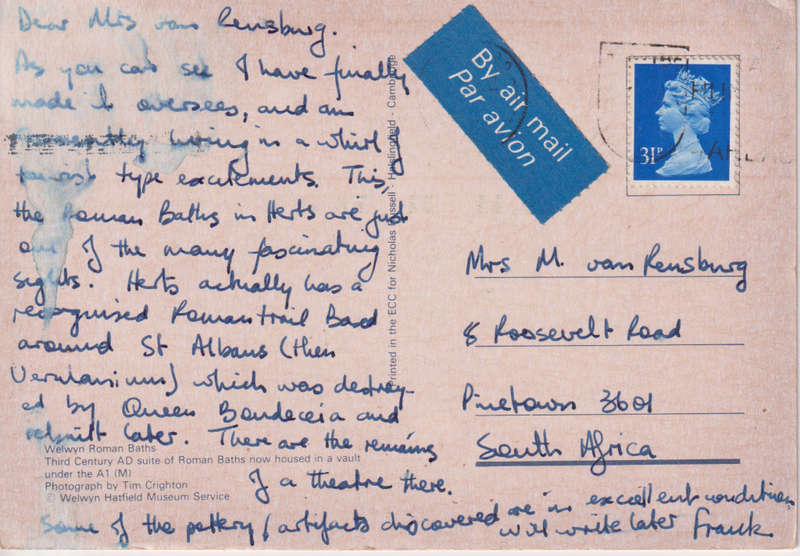 Dear Mrs van Rensburg.
As you can see I have finally
made it oversees, and am
presently living in a whirl of
tourist type excitements. This,
the Roman Baths in Herts are just
one of the many fascinating
sights. Herts actually has a
recognised Roman trail Based
around St Albans (then
Verulamium) which was destroy-
ed by Queen Boudeceia and
rebuilt later. There are the remains
of a theatre there.
Some of the pottery/artifacts discovered are in excellent condition
will write later Frank
Welwyn Roman Baths
Third Century AD suite of Roman Baths now housed in a vault
under the A1 (M)
Photograph by Tim Crighton
© Welwyn Hatfield Museum Service
Printed in the ECC for Nicholas Russell - Haslingfield - Cambridge
By air mail
Par avion
31P
Mrs M. van Rensburg
8 Roosevelt Road
Pinetown 3601
South Africa